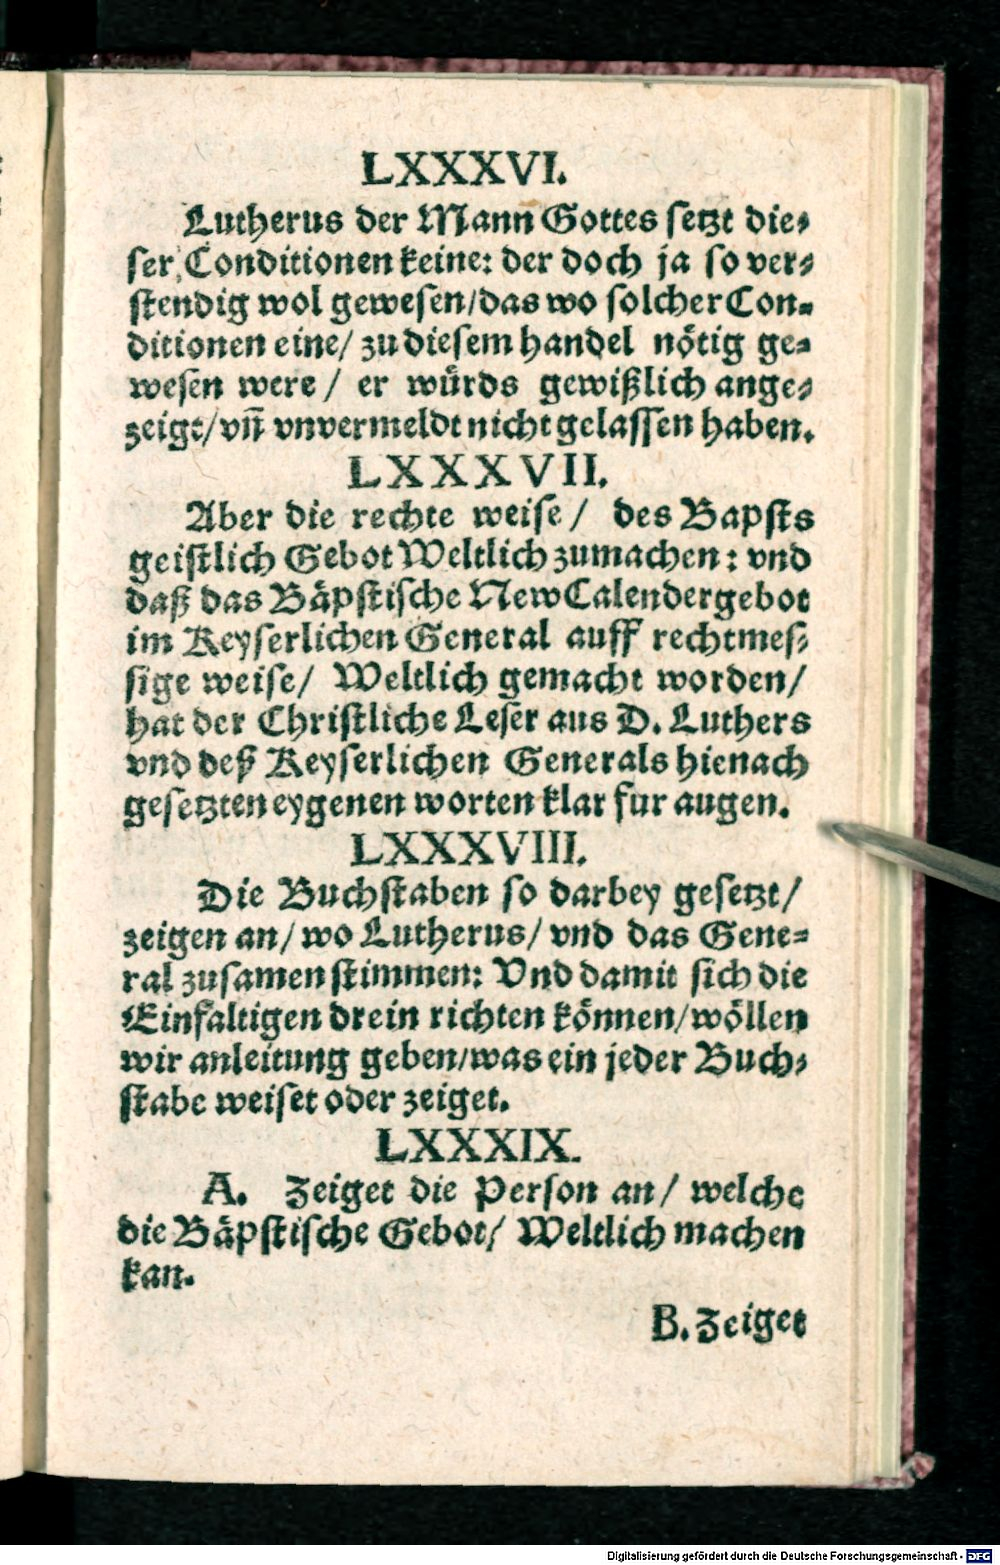 LXXXVI.
Lutherus der Mann Gottes setzt die-
ser Conditionen keine: der doch ja so ver-
stendig wol gewesen/das wo solcher Con-
ditionen eine/ zu diesem handel nötig ge-
wesen were/ er würds gewißlich ange-
zeigt/vñ vnvermeldt nicht gelassen haben.
LXXXVII.
Aber die rechte weise/ des Bapsts
geistlich Gebot Weltlich zumachen: vnd
daß das Bäpstische New Calendergebot
im Keyserlichen General auff rechtmes-
sige weise/ Weltlich gemacht worden/
hat der Christliche Leser aus D. Luthers
vnd deß Keyserlichen Generals hienach
gesetzten eygenen worten klar fur augen.
LXXXVIII.
Die Buchstaben so darbey gesetzt/
zeigen an/ wo Lutherus/ vnd das Gene-
ral zusamen stimmen: Vnd damit sich die
Einfaltigen drein richten können/wöllen
wir anleitung geben/was ein jeder Buch-
stabe weiset oder zeiget.
LXXXIX.
A. Zeiget die Person an/ welche
die Bäpstische Gebot/ Weltlich machen
kan.
B. Zeiget
Digitalisierung gefördert durch die Deutsche Forschungsgemeinschaft - DFG